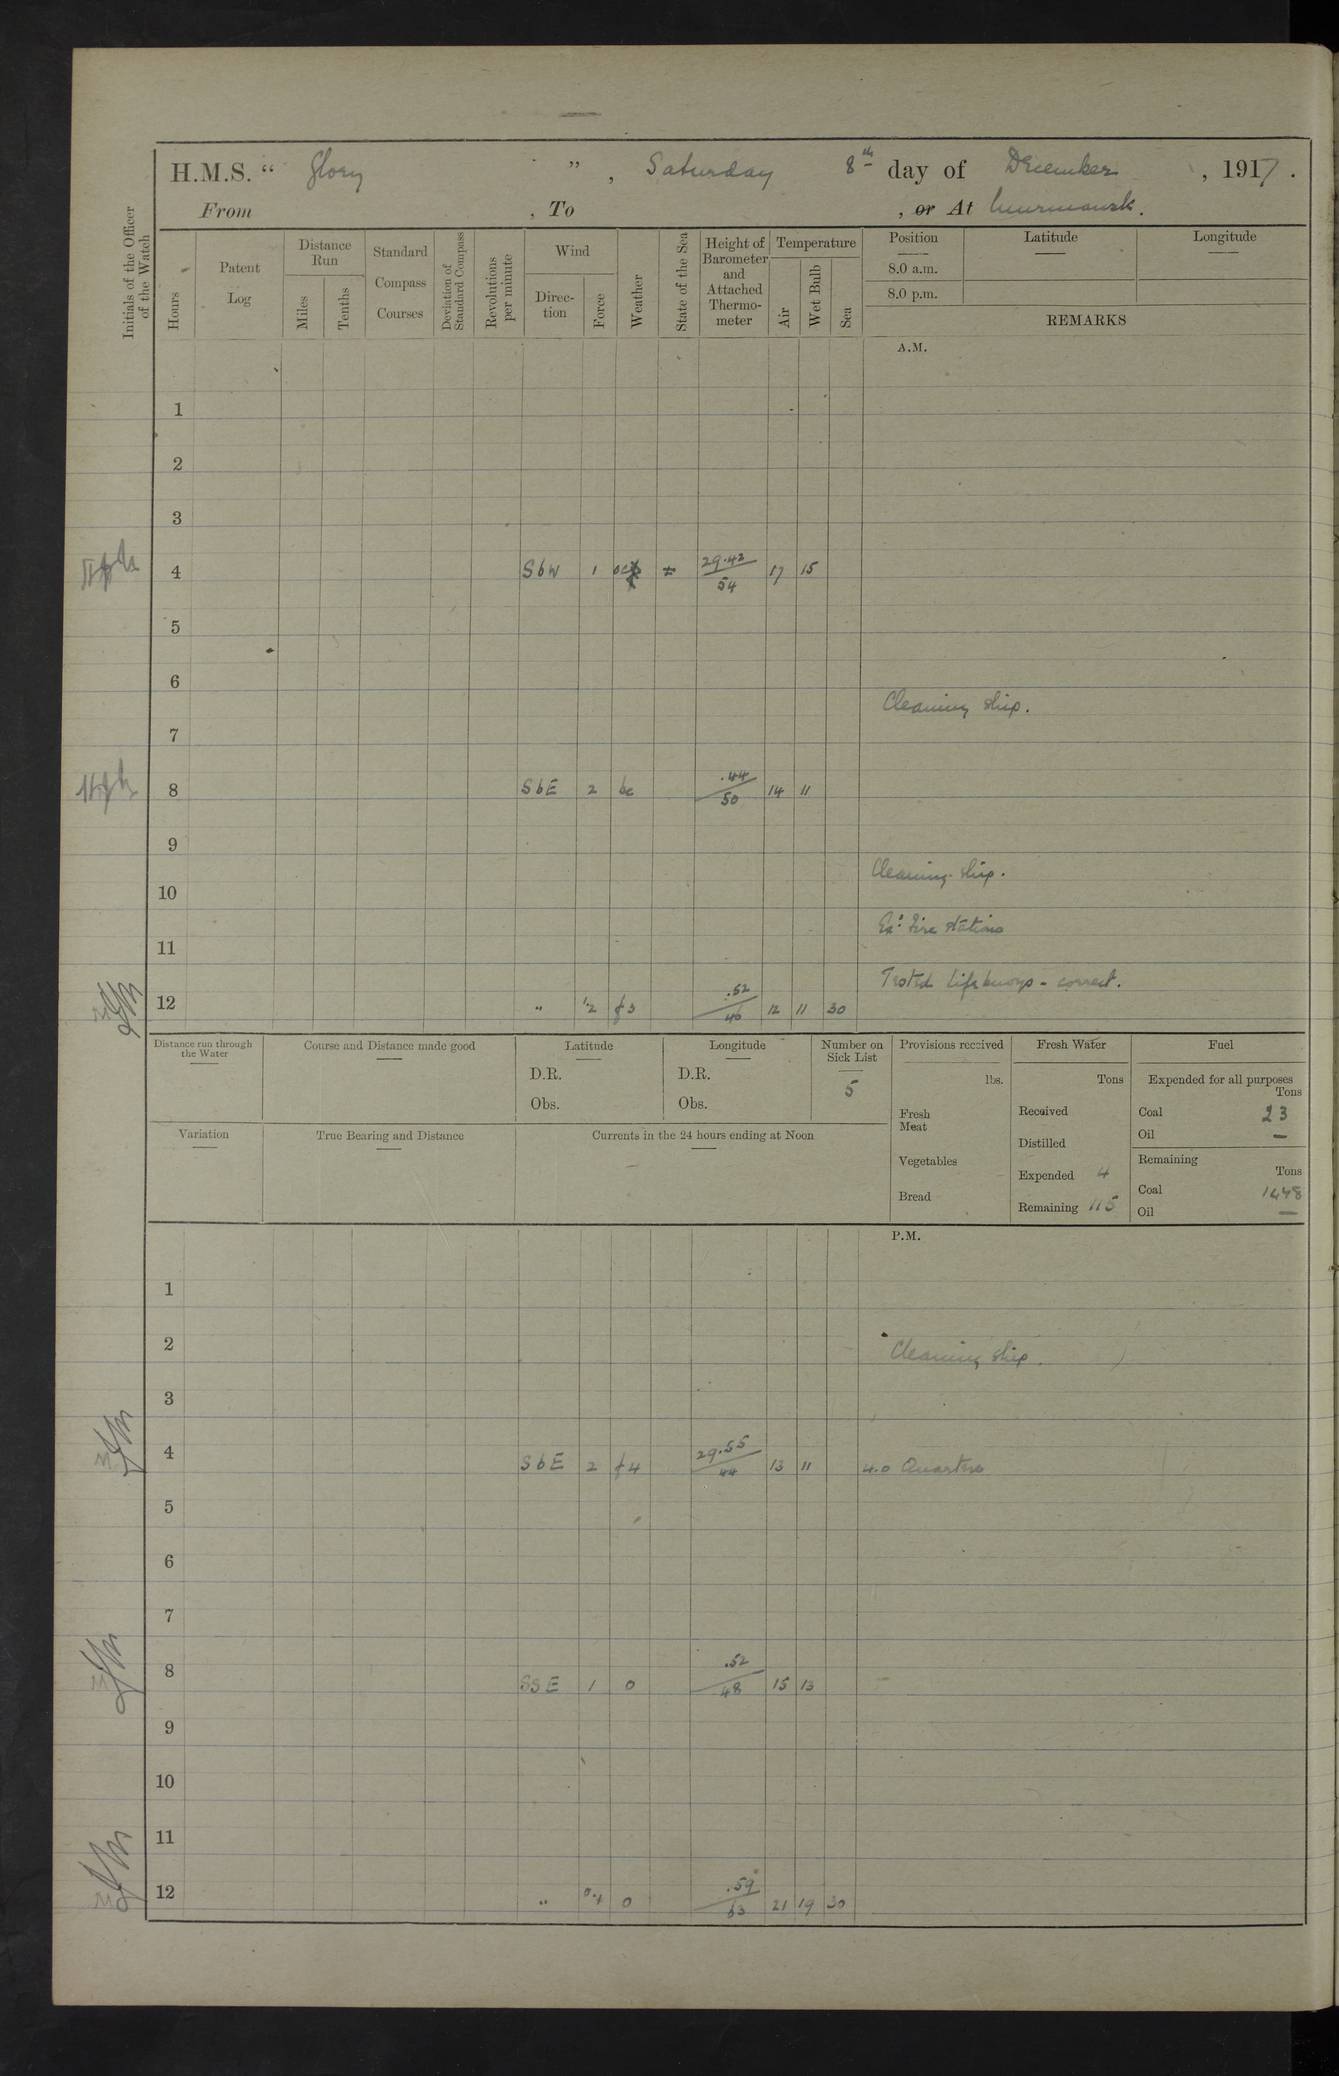 H.M.S. “ Glory ” , Saturday 8th day of December , 1917 .
From , To , or At Murmansk .
Initials of the Officer of the Watch
Hours
Patent Log
Distance Run
Miles
Tenths
Standard Compass Courses
Deviation of Standard Compass
Revolutions per minute
Wind
Direc-tion
Force
Weather
State of the Sea
Height of Barometer and Attached Thermo-meter
Temperature
Air
Wet Bulb
Sea
Position
8.0 a.m.
8.0 p.m.
Latitude
Longitude
REMARKS
A.M.
1
2
3
4 SbW 1 29.42 54 17 15
5
6
Cleaning ship.
7
8 SbE 2 bc .44 50 14 11
9
Cleaning ship.
10
Exd. Fire Stations
11
Tested Lifebuoys - correct.
12 " 1.2 f3 .52 46 12 11 30
Distance run through the Water
Course and Distance made good
Latitude
D.R.
Obs.
Longitude
D.R.
Obs.
Number on Sick List
5
Provisions received
lbs.
Fresh Meat
Vegetables
Bread
Fresh Water
Tons
Received
Distilled
Expended 4
Remaining 115
Fuel
Expended for all purposes
Tons
Coal 23
Oil —
Remaining
Tons
Coal 1448
Oil —
Variation
True Bearing and Distance
Currents in the 24 hours ending at Noon
P.M.
1
2
Cleaning ship.
3
4 SbE 2 f4 29.55 44 13 11 4.0 Quarters
5
6
7
8 SSE 1 o .52 48 15 13
9
10
11
12 " 0.1 o .59 53 21 19 30